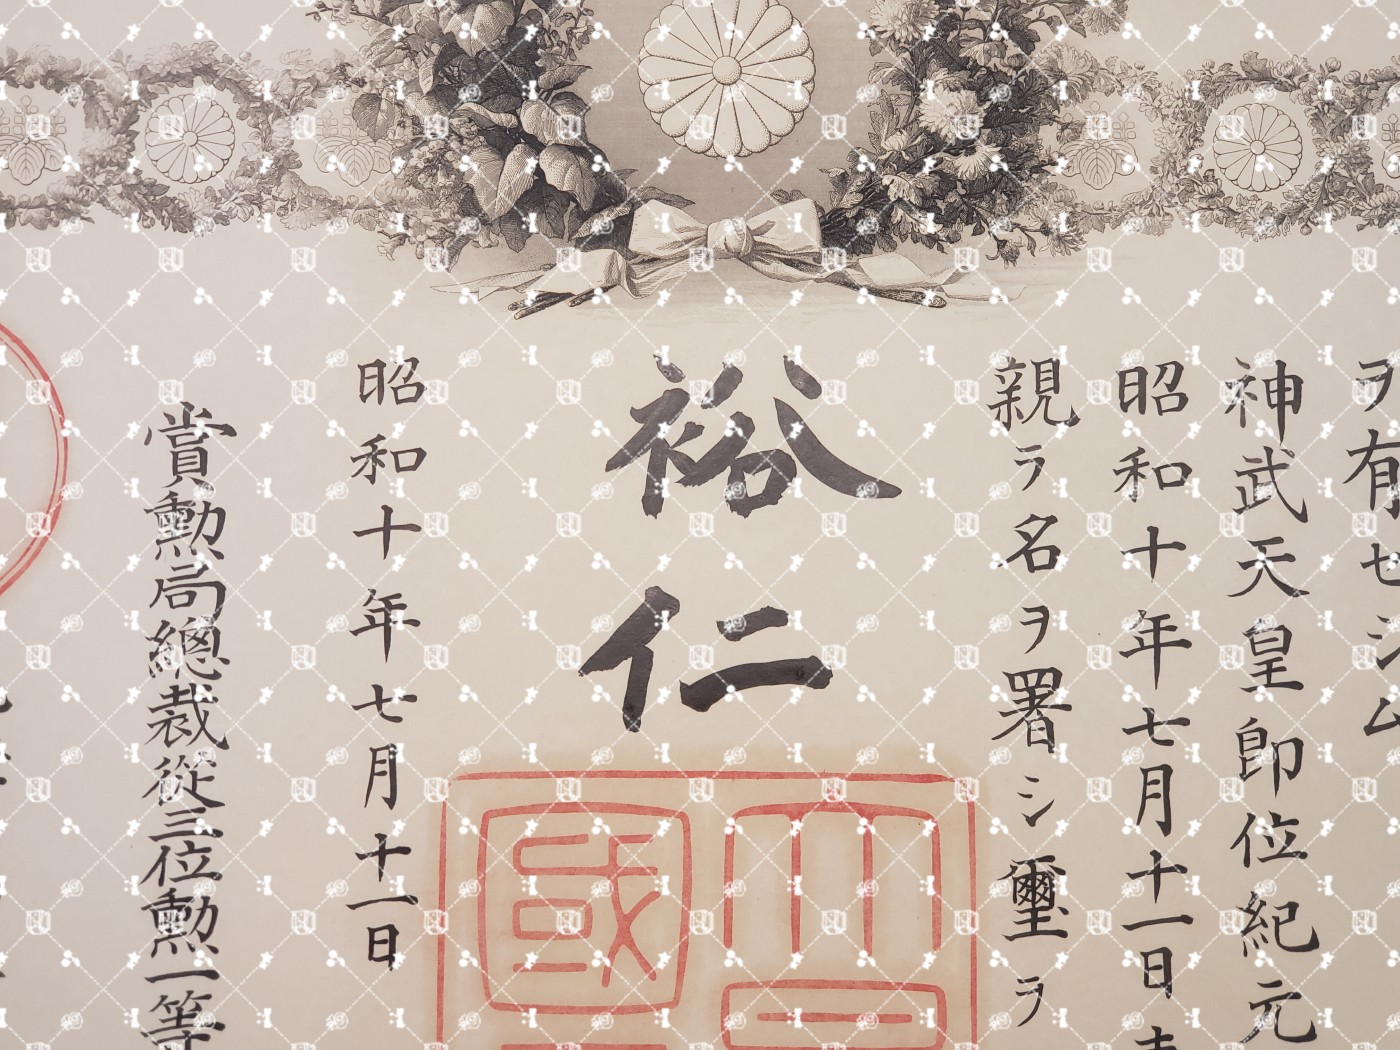 ヲ有セシム
神武天皇即位紀元
昭和十年七月十一日
親ラ名ヲ署シ璽ヲ
裕仁
大
國
昭和十年七月十一日
賞勲局總裁從三位勲一等